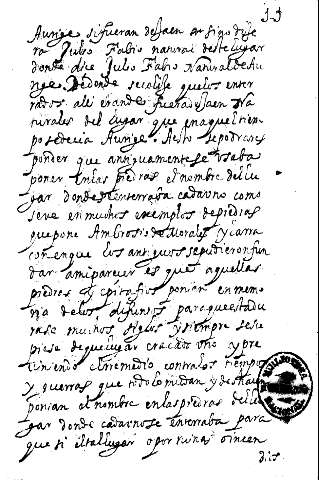 Aurige si fueran de Jaen
ra Julio Fabio natural deste lugar
donde dize Julio Fabio Natural de Au
rige. De donde se colije que los enter
rados alli eran de fuera de Jaen Na
turales del lugar que en aquel tiem
po se decia Aurige. A esto se podra res
ponder que antiguamente se usaba
poner en las piedras el nombre del lu
gar donde se enterraba cada uno como
se ve en muchos exemplos de piedras
que pone Ambrosio de Morales y la rra
con en que los antiguos se pudieron fun
dar a mi parecer es que aquellas
piedras y epitafios ponian en memo
ria de los difuntos para que esta du
rase muchos siglos y siempre se su
piese de que lugar era cada uno y pre
viniendo el remedio contra los tiempos
y guerras que todo lo mudan y deshacen
ponian el nombre en las piedras del lu
gar donde cada uno se enterraba para
que si el tal lugar o por ruina o incen
dio